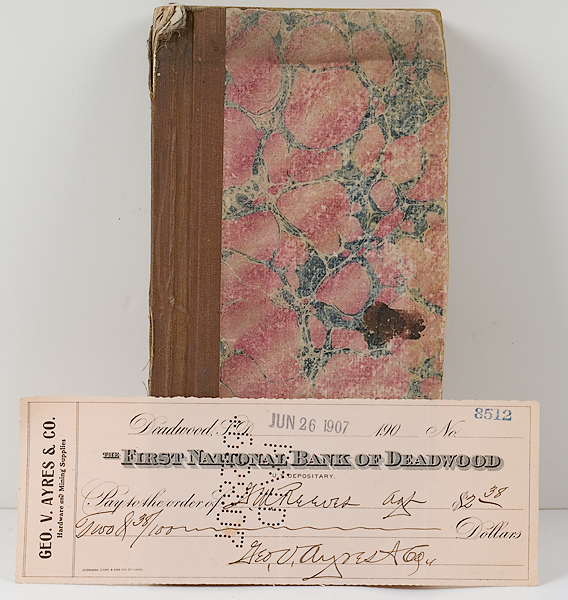 GEO. V. AYRES & CO.
Hardware and Mining Supplies
Deadwood, S.D. JUN 26 1907 190 No. 8512
THE FIRST NATIONAL BANK OF DEADWOOD
U.S. DEPOSITARY.
Pay to the order of Reeves Agt $2 38
Two & 38/100 Dollars
Geo. V. Ayres & Co.